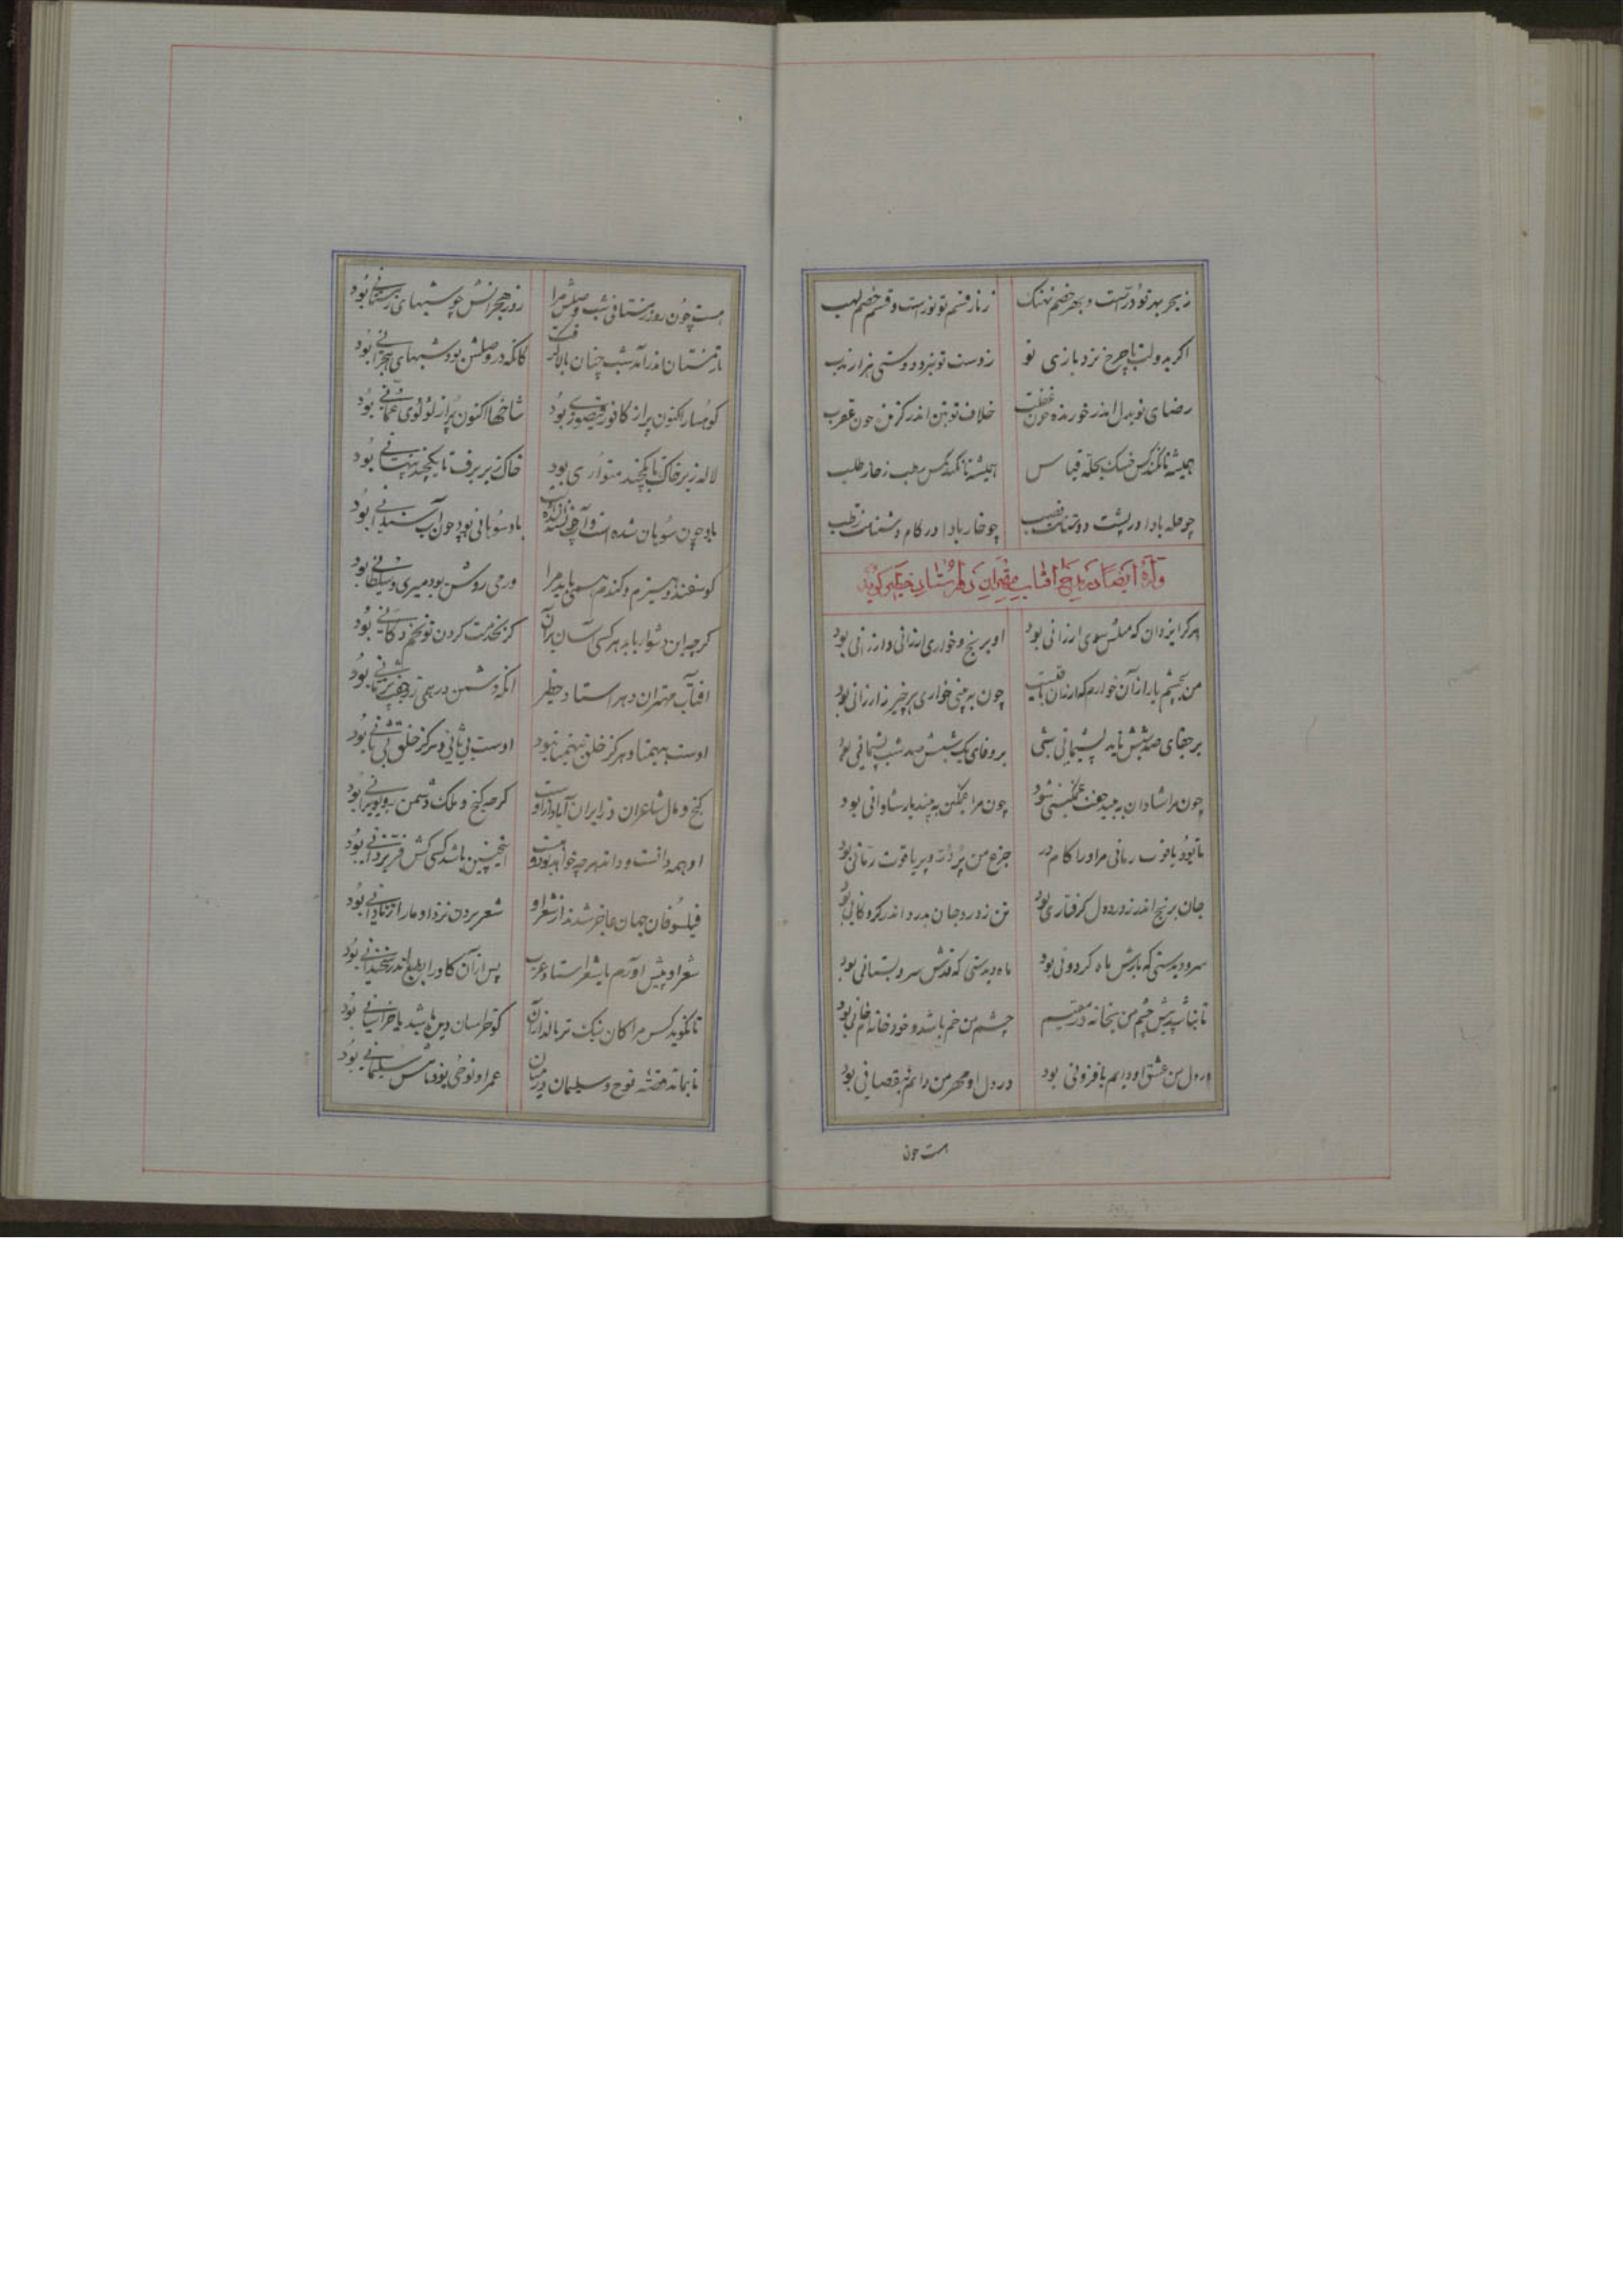 ز بحر بهر تو درّ است و بهر خصم نهنگ زنار قسم تو نور است و قسم خصم لهب
اگر بدولت با چرخ نرد بازی تو ز دست تو نبرد دستی هزار ندب
رضای تو بدل اندر خورنده چون خلاف تو بتن اندر گزنده چون عقرب
همیشه تا نکند کس خسک بحلّه قیاس همیشه تا نکند کس رطب ز خار طلب
چو حله بادا در پشت دوستانت چو خار بادا در کام دشمنانت رطب
وله ایضا در مدح آفتاب مهتران گوید
هر کرا یزدان که میلش سوی ارزانی بود او برنج و خواری ارزانی و ارزانی بود
من بچشم یار از آن خوارم که ارزان یافتست چون به بینی خواری هر چیز ز ارزانی بود
بر جفای صد شبش ناید پشیمانی شبی بر وفای یک شبش صد شب پشیمانی بود
چون مرا شادان به بیند جفت غمگینی شود چون مرا غمگین به بیند یار شادانی بود
تا بود یاقوت رمانی مر او را کام در جزع من پر درّ و پر یاقوت رمّانی بود
جان برنج اندر ز درد دل گرفتاری بود تن ز درد جان بدرد اندر گروگانی بود
سرو دیدستی که بارش ماه گردونی بود ماه دیدستی که قدش سرو بستانی بود
تا نباشد پیش چشم من بخانه در مقیم چشم من خم باشد و خود خانه خانی بود
در دل من عشق او دایم بافزونی بود در دل او مهر من دائم بنقصانی بود
هست چون
هست چون روز زمستانی شب وصلش مرا روز هجرانش چو شبهای زمستانی بود
تا زمستان اندر آمد شب چنان بالا گرفت کانکه در وصلش بود شبهای هجرانی بود
کوهسار اکنون پر از کافور قیصوری بود شاخها اکنون پر از لؤلؤی عمّانی بود
لاله زیر خاک تا یکچند متواری بود خاک زیر برف تا یکچند پنهانی بود
باد چون سوهان شده است و آب چون سندان شده باد سوهانی بود چون آب سندانی بود
گوسفند و هیزم و گندم همی باید مرا ور می روشن بود میری و سلطانی بود
گرچه این دشوار یابد هر کسی آسان بر آن کز بخدمت کردن تو بختم دکانی بود
آفتاب مهتران دهر استاد خطیر آنکه دشمن در همی زو جفت پژمانی بود
اوست بیهمتا و هرگز خلق بیهمتا نبود اوست بی ثانی و هرگز خلق بی ثانی بود
گنج و مال شاعران در ایران آباد از اوست گرچه گنج و ملک دشمن زو بویرانی بود
او همه دانست و داند هر چه خواهد بود و هست اینچنین باشد کسی کش فر یزدانی بود
فیلسوفان جهان عاجز شدند از شعر او شعر بردن نزد او ما را ز نادانی بود
شعر او پیش آورم یا شعر استاد عرب پس از آن کاو را بطبع اندر سخندانی بود
تا نگوید کس مرا کان نیک تر یا لذ از آن گو خراسان دین باشد یا خراسانی بود
تا بماند قصّه نوح و سلیمان در میان عمر او نوحی بود ملکش سلیمانی بود